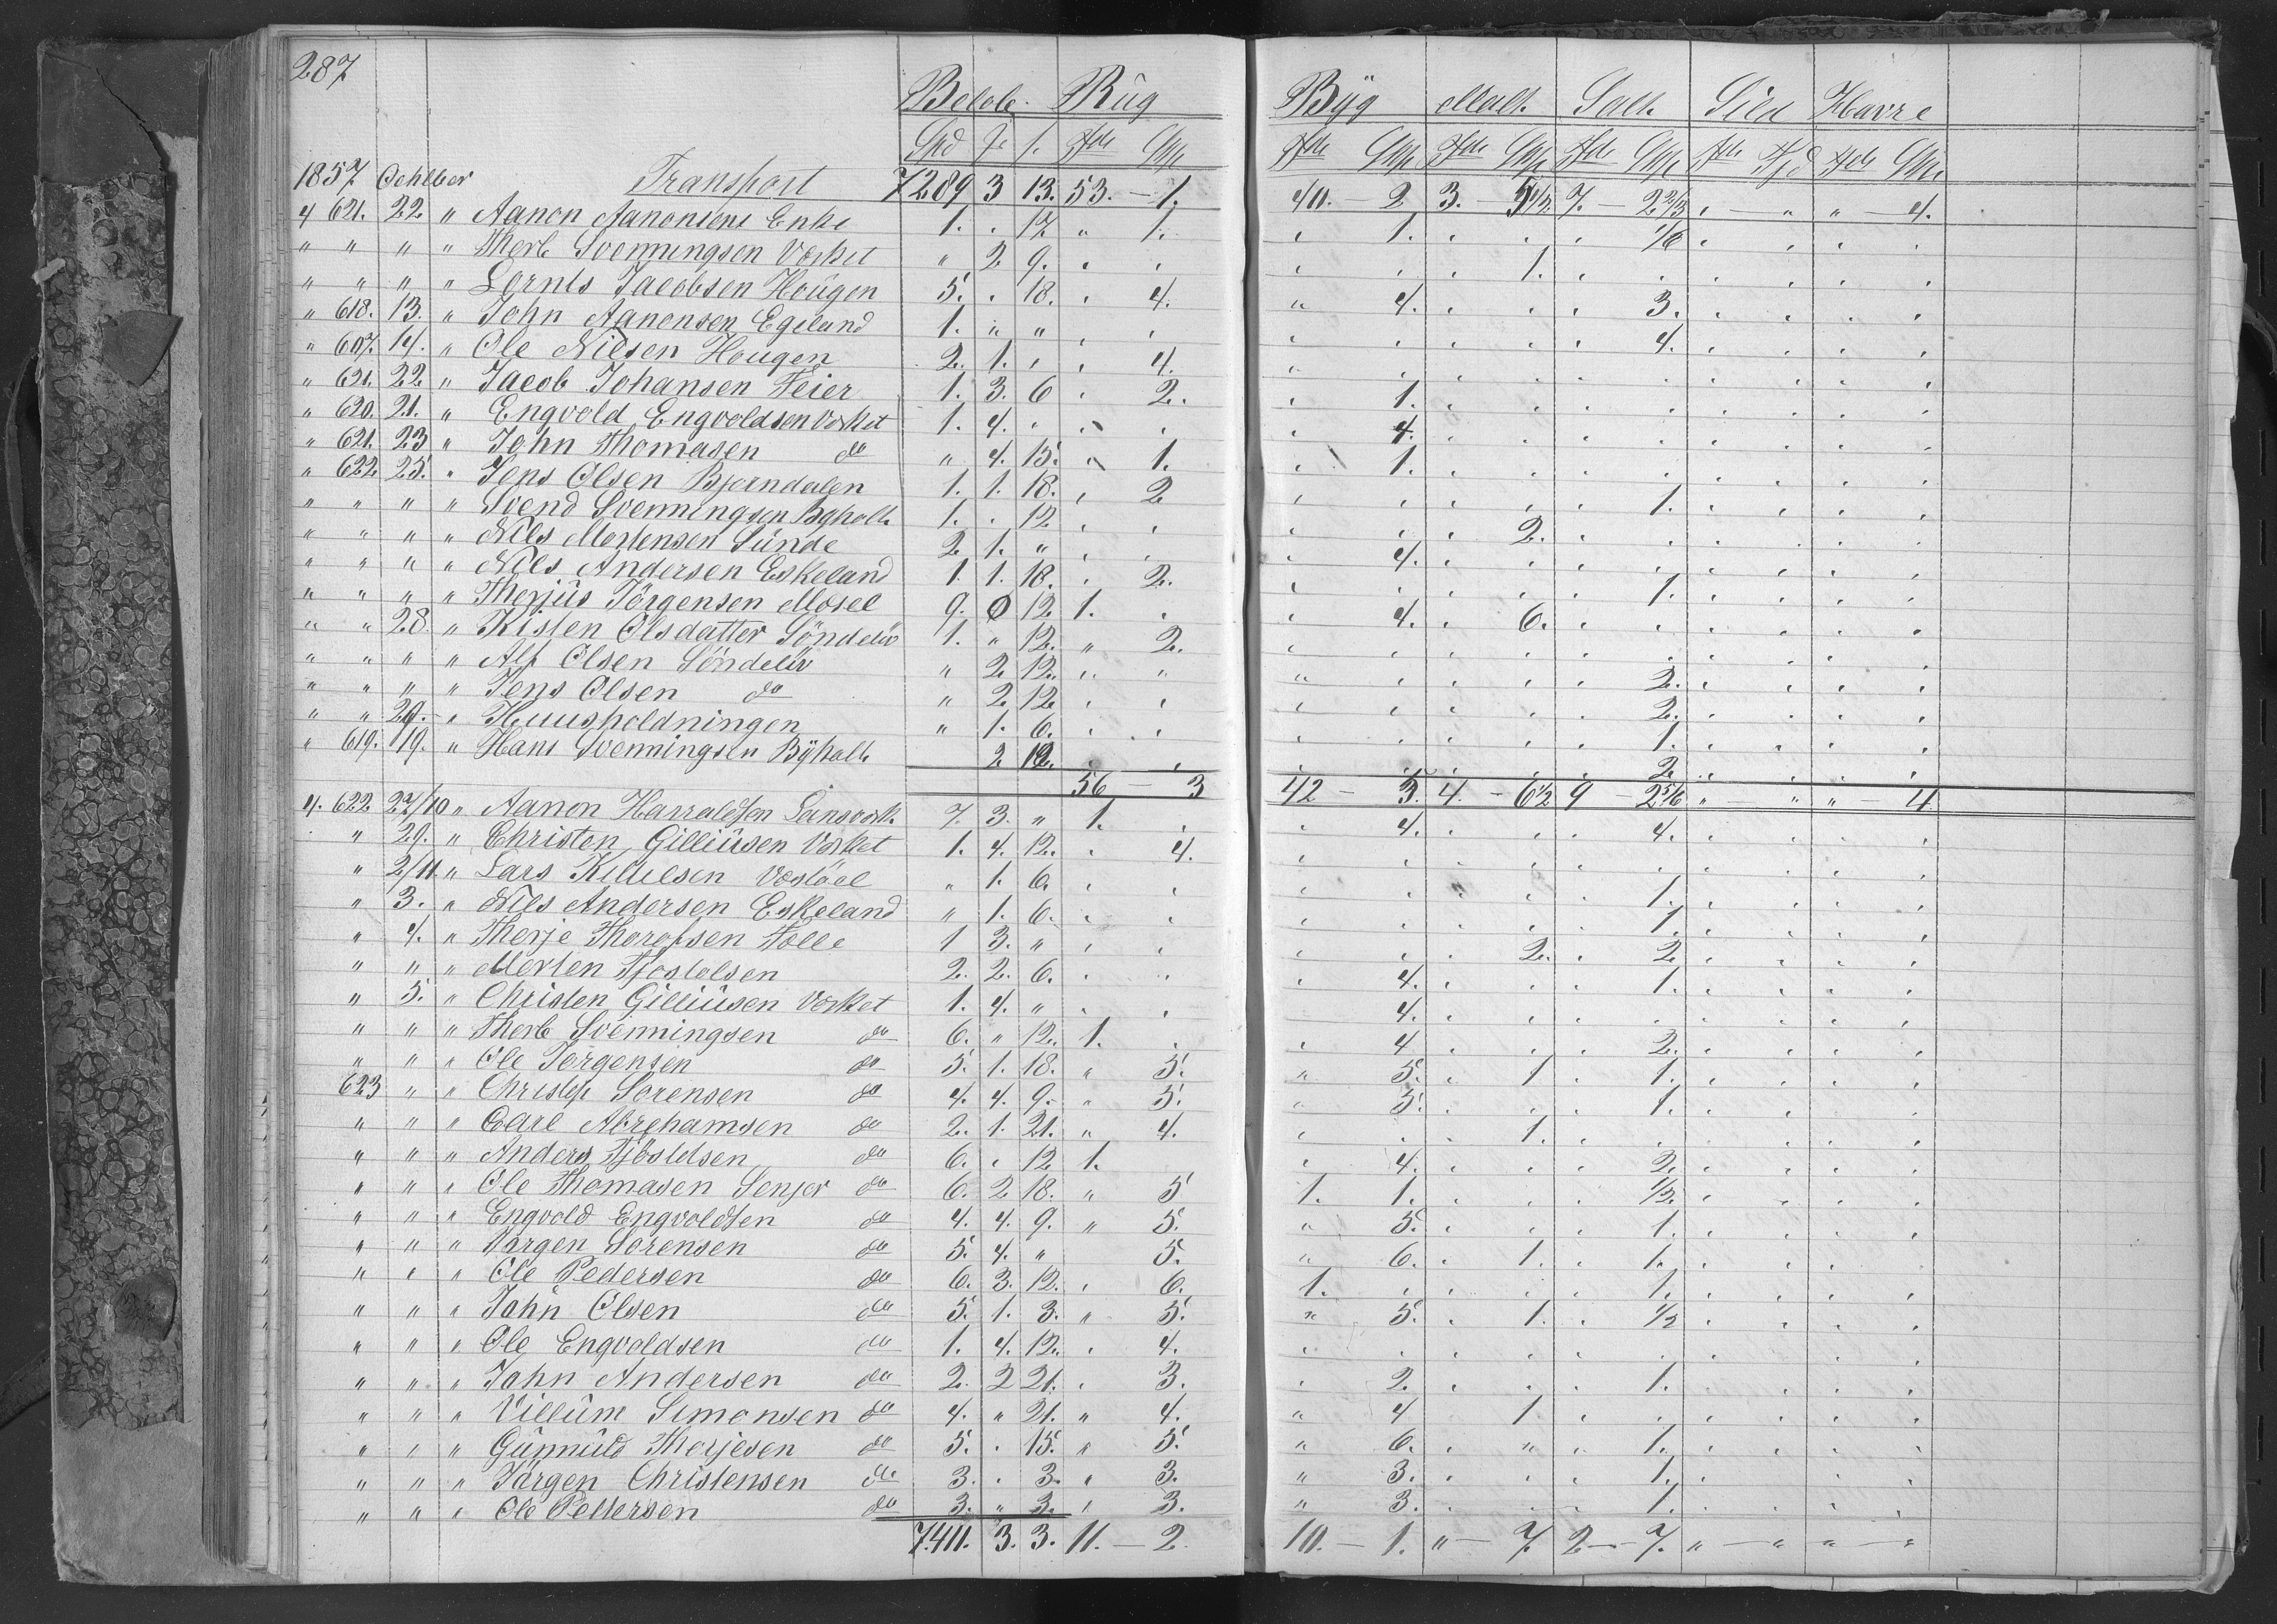 287
Beløb. Rüg Byg Malt. Salt. Sild Havre
Spd f. s. Tdr Skp Tdr Skp Tdr Skp Tdr Skp Tdr Tdr Skp
1857 October Transport 7289 3 13. 53. — 1. 40. — 2 3. — 7. — 2 2/3 , — " " — 4.
4 621. 22 " Aanon Aanonsens Enke 1. . 17 " 1. , 1. , , , 1/6 , , , ,
" " " " Therb Svenningsen Værket " 2 9. , , , , , 1. , , , , , ,
" " " " Lornts Jacobsen Haügen 5. . 18. , 4. " 4. , , , 3. , , , ,
" 618. 13. " John Aanonsen Egeland 1. " " , , , , , , , 4. , , , ,
" 607. 14. " Ole Nilsen Hougen 2. 1. , , 4. , , , , , , , , , ,
" 621. 22 " Jacob Johansen Feier 1. 3. 6 . 2. , 1. , , , , , , , ,
" 620. 21. " Engvold Engvoldsen Værket 1. 4. , , , , 4. , , , , , , , ,
" 621. 23 " John Thomasen do " 4. 15. , 1. , 1. , , , , , , , ,
" 622 25. " Jens Olsen Bjorndalen 1. 1. 18. , 2 , , , , , 1. , , , ,
" " " " Svend Svenningsen Bgholt 1. . 12 , , , , , 2. , , , , , ,
" " " " Nils Mortensen Sünde 2 1. " , , , 4. , , , , , , , ,
" " " " Nils Andersen Eskeland 1. 1. 18. , 2. , , , , , 1. , , , ,
" " " " Therjüs Jörgensen Mosel 9. 0 12 1. , , 4. , 6. , , , , , ,
" " 28. " Kisten Olsdatter Söndeliv 1. " 12. " 2. , , , , , , , , , ,
" " " " Alf Olsen Söndeliv " 2 12. , " " , , , , 2. , , , ,
" " " " Jens Olsen do " 2 12 , , , , , , , 2. , , , ,
" " 29. " Huusholdningen " 1. 6. , , , , , , , 1. , , , ,
" 619. 19. " Hans Svenningsen Bÿholt. 2 12. , , , , , , , 2 , , , ,
56 — 3 42 — 3. 4. — 6 1/2 9 — 2 5/6 " — " " — 4
4. 622 27/10 " Aanon Harraldsen 7. 3. " 1. , , 4. , , , 4. , , , ,
" 29. " Christen Gilliüsen Værket 1. 4. 12. , 4. , , , , , , , , , ,
" 2/11. " Lars Kittelsen " 1. 6. , , , , , , , 1. , , , ,
" 3. " Nils Andersen Eskeland " 1. 6. , , , , , , , 1. , , , ,
" 4. " Therje Thorofsen 1 3. " , , , , , 2. , 2 , , , ,
" " " Merten Tjostolsen 2. 2. 6. , , , 4. , , , 1. , , , ,
" 5. " Christen Gilliüsen Værket 1. 4. " , , , 4. , , , , , , , ,
" " " Therb Svenningsen do 6. " 12. 1. , , 4 , , , 2. , , , ,
" " " Ole Jørgensen do 5. 1. 18. " 5. " 5. , 1 , 1. , , , ,
623 " " Christen Sorensen do 4. 4. 9. " 5. " 5. , , , 1. , , , ,
" " " Carl Abrehamsen do 2. 1. 21. " 4. , , , 1. , , , , , ,
" " " Anders Tjöstelsen do 6. , 12 1. , 4. , , , 2. , , , ,
" " " Ole Thomasen Senjor do 6. 2 18. " 5 1. 1. , , , 1/2. , , , ,
" " " Engvold Engvoldsen do 4. 4. 9. " 5. " 5. , , , 1. , , , ,
" " " Jørgen Sorensen do 5. 4. " 5. " 6. , 1. , 1. , , , ,
" " " Ole Pedersen do 6. 3. 12. , 6. 1. , , , , 1. , , , ,
" " " John Olsen do 5. 1. 3. " 5. " 5. , 1. , 1/2 , , , ,
" " " Ole Engvoldsen do 1. 4. 12. , 4. , , , , , , , , , ,
" " " John Andersen do 2. 2 21. , 3. , 2. , , , 1. , , , ,
" " " Villüm Simonsen do 4. " 21. " 4. " 4 , 1 , , , , , ,
" " " Günnüld Therjesen do 5. . 15. " 5. " 6. , " , 1. , , , ,
" " " Jörgen Christensen do 3. . 3. " 3. " 3. , , , 1. , , , ,
" " " Ole Pettersen do 3. " 3. , 3. " 3. , , , 1. , , , ,
7411. 3. 3. 11. — 2. 10. — 1. " — 7. 2 — 7. " — " " — "